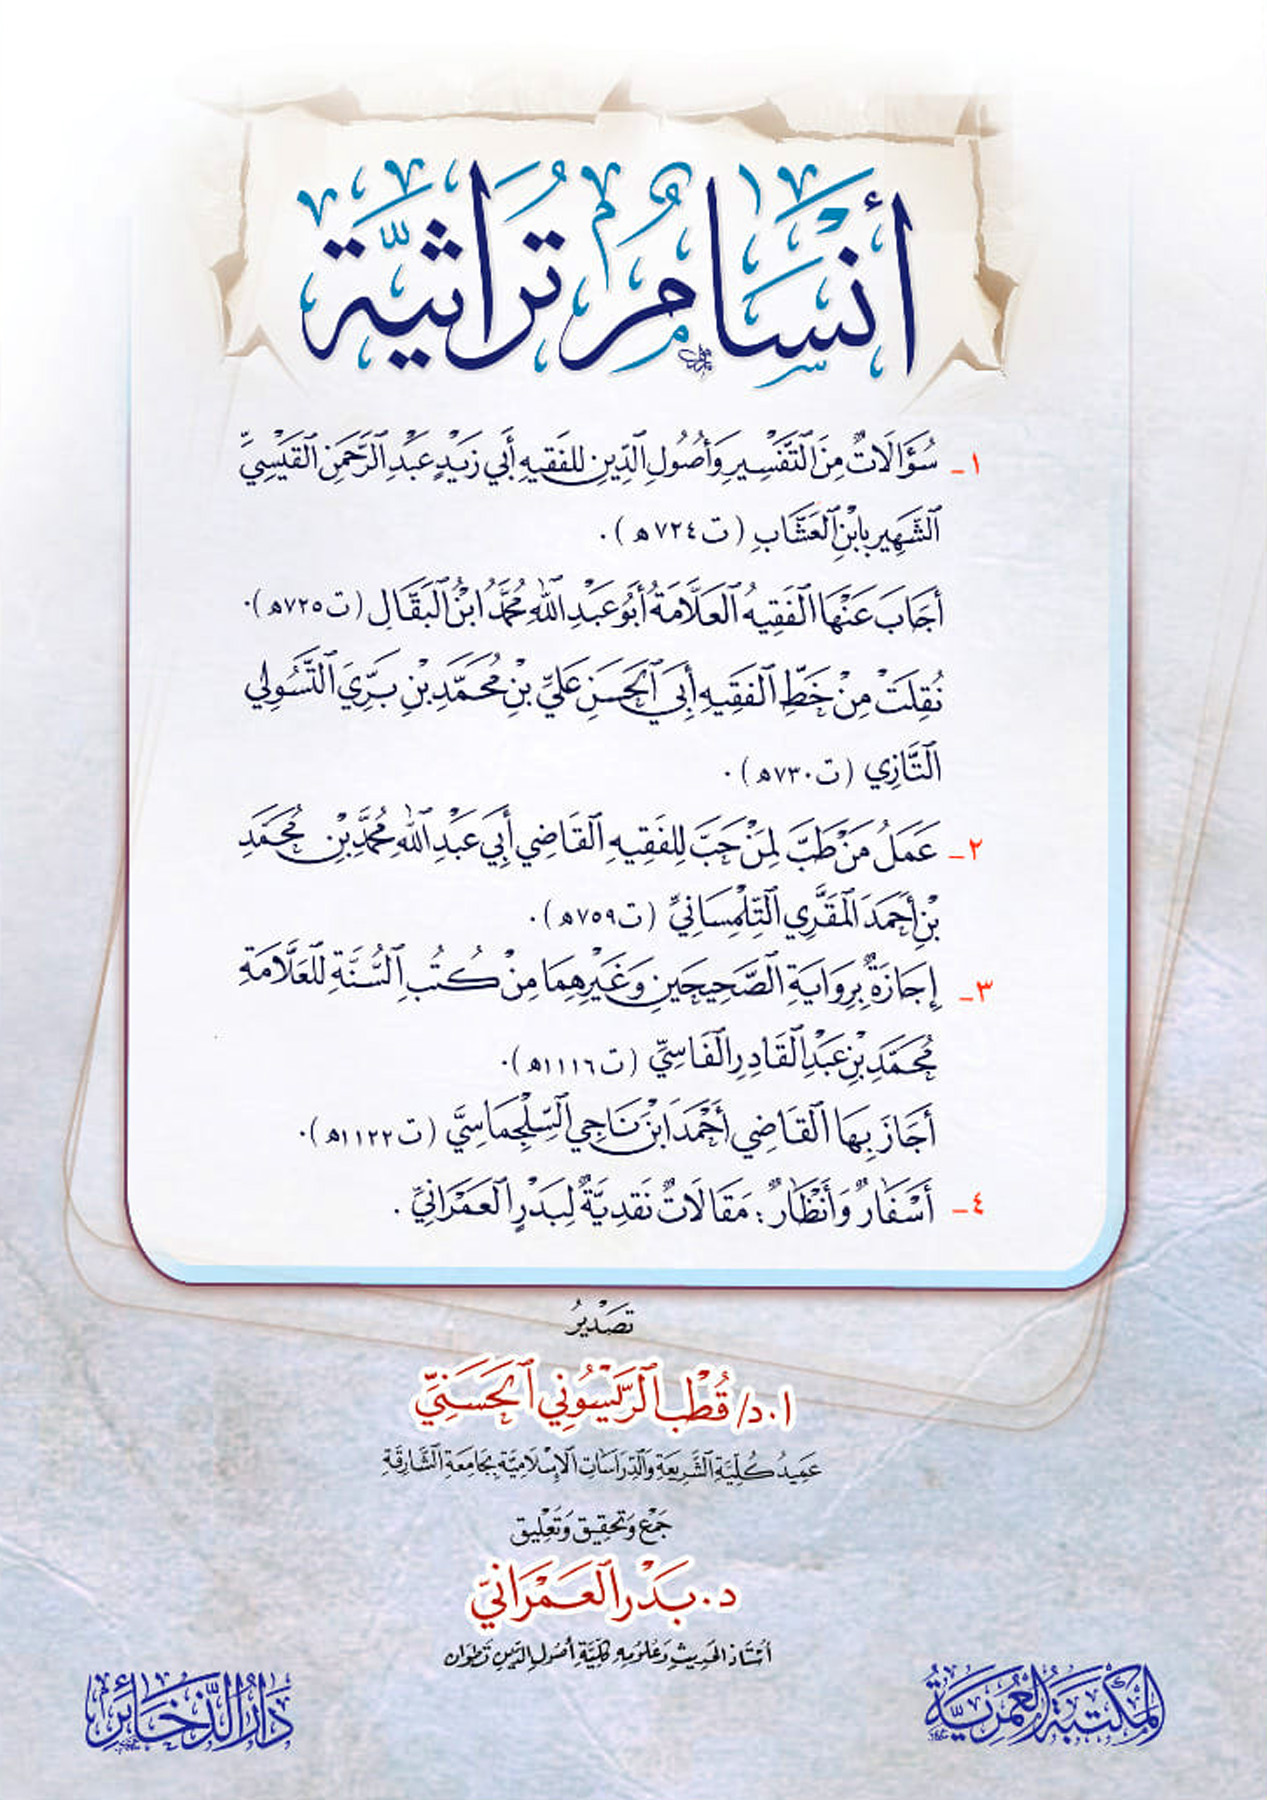 أَنْسَامٌ تُرَاثِيَّة
١- سُؤَالَاتٌ مِنَ التَّفْسِيرِ وَأُصُولِ الدِّينِ لِلفَقِيهِ أَبِي زَيْدٍ عَبْدِ الرَّحْمَنِ القَيْسِيِّ
الشَّهِيرِ بِابْنِ العَشَّابِ (ت ٧٢٤هـ).
أَجَابَ عَنْهَا الفَقِيهُ العَلَّامَةُ أَبُو عَبْدِ اللهِ مُحَمَّدُ ابْنُ البَقَّالِ (ت ٧٢٥هـ).
نُقِلَتْ مِنْ خَطِّ الفَقِيهِ أَبِي الحَسَنِ عَلِيِّ بْنِ مُحَمَّدِ بْنِ بَرِّيَ التَّسُولِي
التَّازِي (ت ٧٣٠هـ).
٢- عَمَلُ مَنْ طَبَّ لِمَنْ حَبَّ لِلفَقِيهِ القَاضِي أَبِي عَبْدِ اللهِ مُحَمَّدِ بْنِ مُحَمَّدِ
بْنِ أَحْمَدَ المَقَّرِي التِّلِمْسَانِيِّ (ت ٧٥٩هـ).
٣- إِجَازَةٌ بِرِوَايَةِ الصَّحِيحَيْنِ وَغَيْرِهِمَا مِنْ كُتُبِ السُّنَّةِ لِلعَلَّامَةِ
مُحَمَّدِ بْنِ عَبْدِ القَادِرِ الفَاسِيِّ (ت ١١١٦هـ).
أَجَازَ بِهَا القَاضِي أَحْمَدَ ابْنَ نَاجِي السِّلْجِمَاسِيَّ (ت ١١٢٢هـ).
٤- أَسْفَارٌ وَأَنْظَارٌ: مَقَالَاتٌ نَقْدِيَّةٌ لِبَدْرٍ العَمْرَانِيِّ.
تَصْدِيرُ
ا.د/ قُطْب الرَّيْسُونِي الحَسَنِيّ
عَمِيدُ كُلِّيَّةِ الشَّرِيعَةِ وَالدِّرَاسَاتِ الإِسْلَامِيَّةِ بِجَامِعَةِ الشَّارِقَةِ
جَمْع وَتَحْقِيق وَتَعْلِيق
د. بَدْر العَمْرَانِيّ
أُسْتَاذ الحَدِيثِ وَعُلُومِهِ كُلِّيَّة أُصُولِ الدِّينِ تَطْوَان
المَكْتَبَةُ العُمَرِيَّة
دَارُ الذَّخَائِر